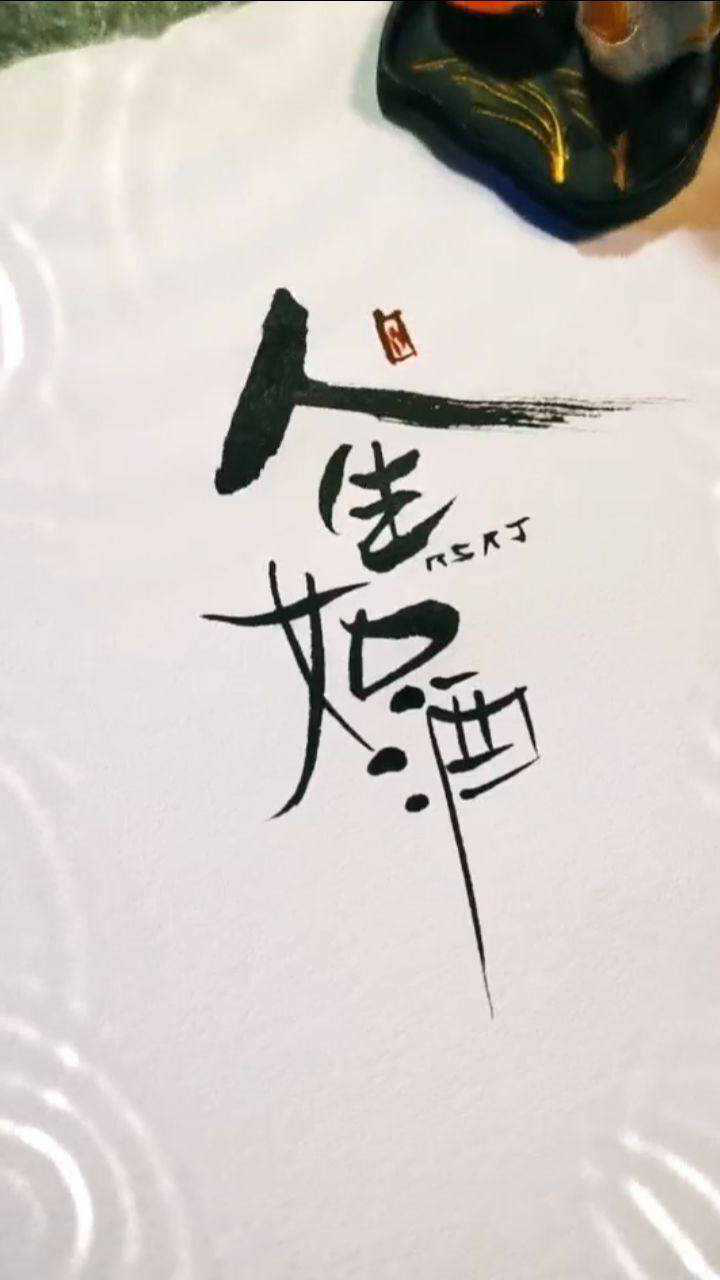 人生
RSRJ
如酒